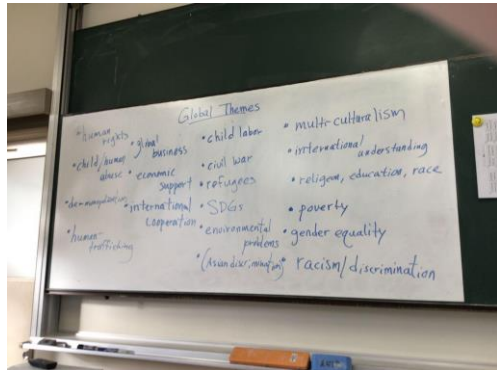 Global Themes
• human
rights
• child/human
abuse
• human-
trafficking
• global
business
• economic
support
• international
cooperation
• child labor
• civil war
• refugees
• SDGs
• environmental
problems
• (Asian discrimination)
• multi-culturalism
• international understanding
• religion, education, race
• poverty
• gender equality
• racism/discrimination